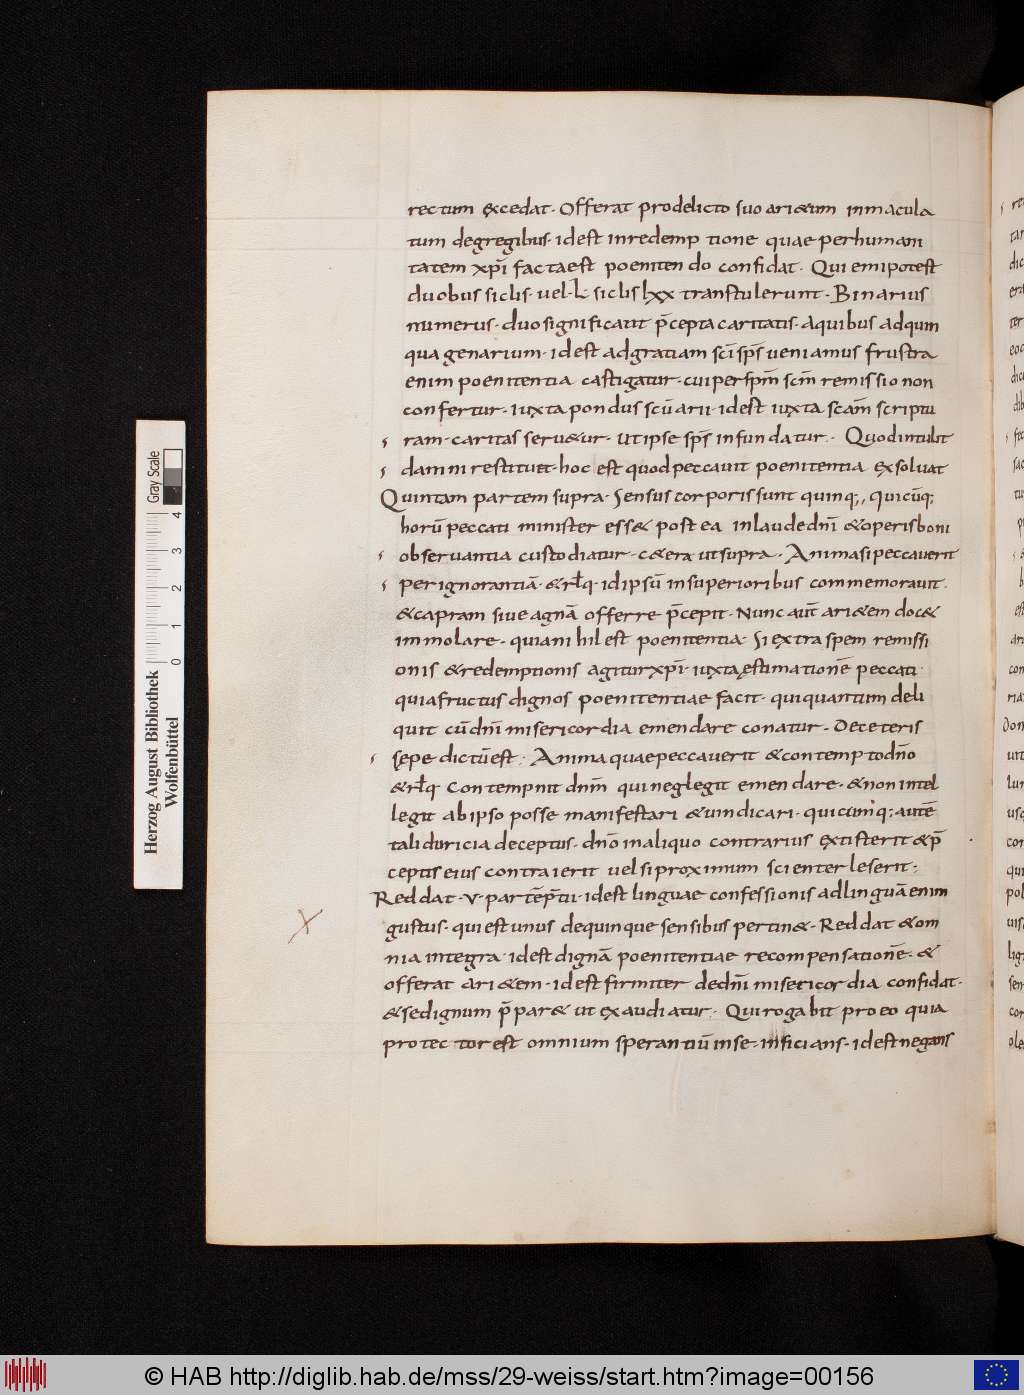 rectum excedat. Offerat prodelicto suo ari&um inmacula
tum degregibus. idest inredemp tione quae perhumani
tatem xp̄i factaest poeniten do confidat. Qui emi potest
duobus siclis. uel. L. siclis lxx transtulerunt. Binarius
numerus. duo significauit p̄cepta caritatis. aquibus adquin
quagenarium. idest adgratiam sc̄i sp̄s ueniamus frustra
enim poenitentia castigatur. cui persp̄m sc̄m remissio non
confertur. iuxta pondus scūarii. idest iuxta scām scriptu
ram. caritas seru&ur. ut ipse sp̄s infundatur. Quod intulit
damni restituet. hoc est quod peccauit poenitentia exsoluat
Quintam partem supra. Sensus corporis sunt quinq;, quicūq;
horū peccati minister ess& post ea inlaude dn̄i &operis boni
obseruantia custodiatur. c&era ut supra. Anima si peccauerit
per ignorantiā. &rłq. id ipsū insuperioribus commemorauit.
&capram siue agnā offerre p̄cepit. Nunc aut̄ ari&em doc&
immolare. quia nihil est poenitentia. Si extra spem remissi
onis &redemptionis agitur xp̄i. iuxta ęstimationē peccati.
quia fructus dignos poenitentiae facit. qui quantum deli
quit cū dn̄i misericordia emendare conatur. De ceteris
sępe dictū est. Anima quae peccauerit &contempto dn̄o
&rłq. Contempnit dn̄m qui neglegit emendare. &non intel
legit ab ipso posse manifestari &uindicari. quicumq; autē
tali duricia deceptus. dn̄o in aliquo contrarius extisterit &p̄
ceptis eius contraierit uel si proximum scienter leserit.
Reddat. v. partē p̄tii. idest linguae confessionis ad linguā enim
gustus. qui est unus dequinque sensibus pertin&. Reddat &om
nia integra. idest dignā poenitentiae recompensationē. &
offerat ari&em. idest firmiter de dn̄i misericordia confidat.
&se dignum p̄par& ut exaudiatur. Qui rogabit pro eo quia
protector est omnium sperantiū in se. inficians. idest negans
Herzog August Bibliothek
Wolfenbüttel
Gray Scale
0 1 2 3 4
© HAB http://diglib.hab.de/mss/29-weiss/start.htm?image=00156